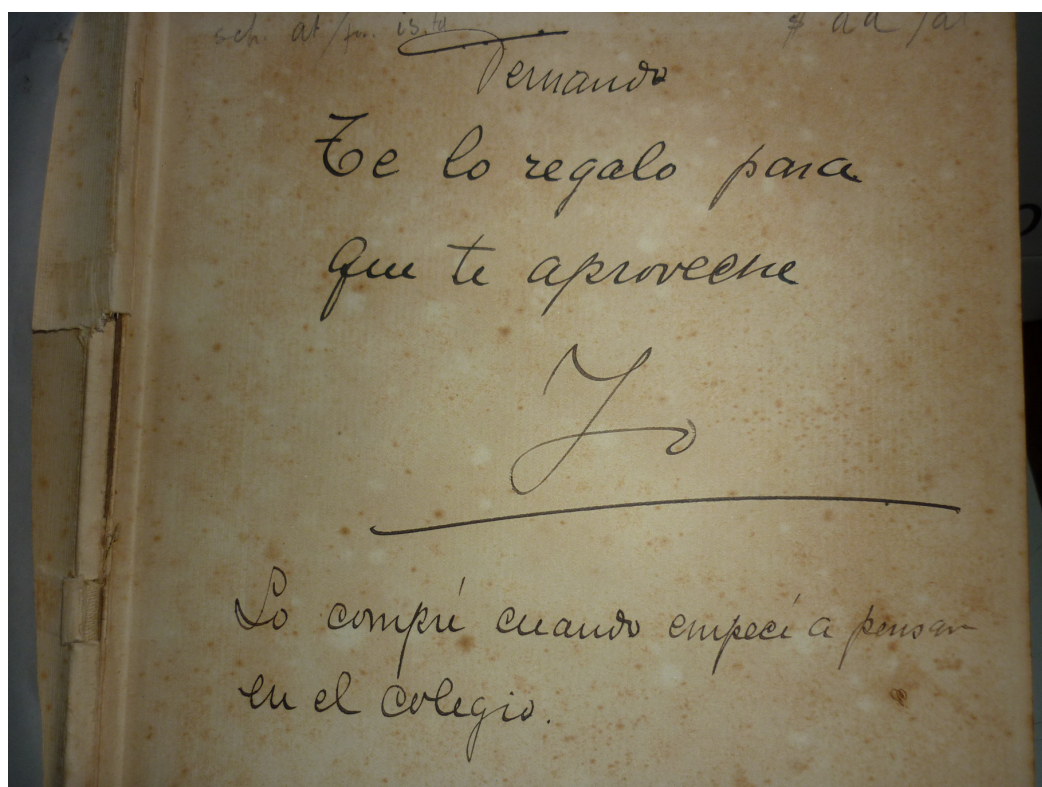 Fernando
Te lo regalo para
que te aproveche
Yo
Lo compré cuando empecé a pensar
en el colegio.